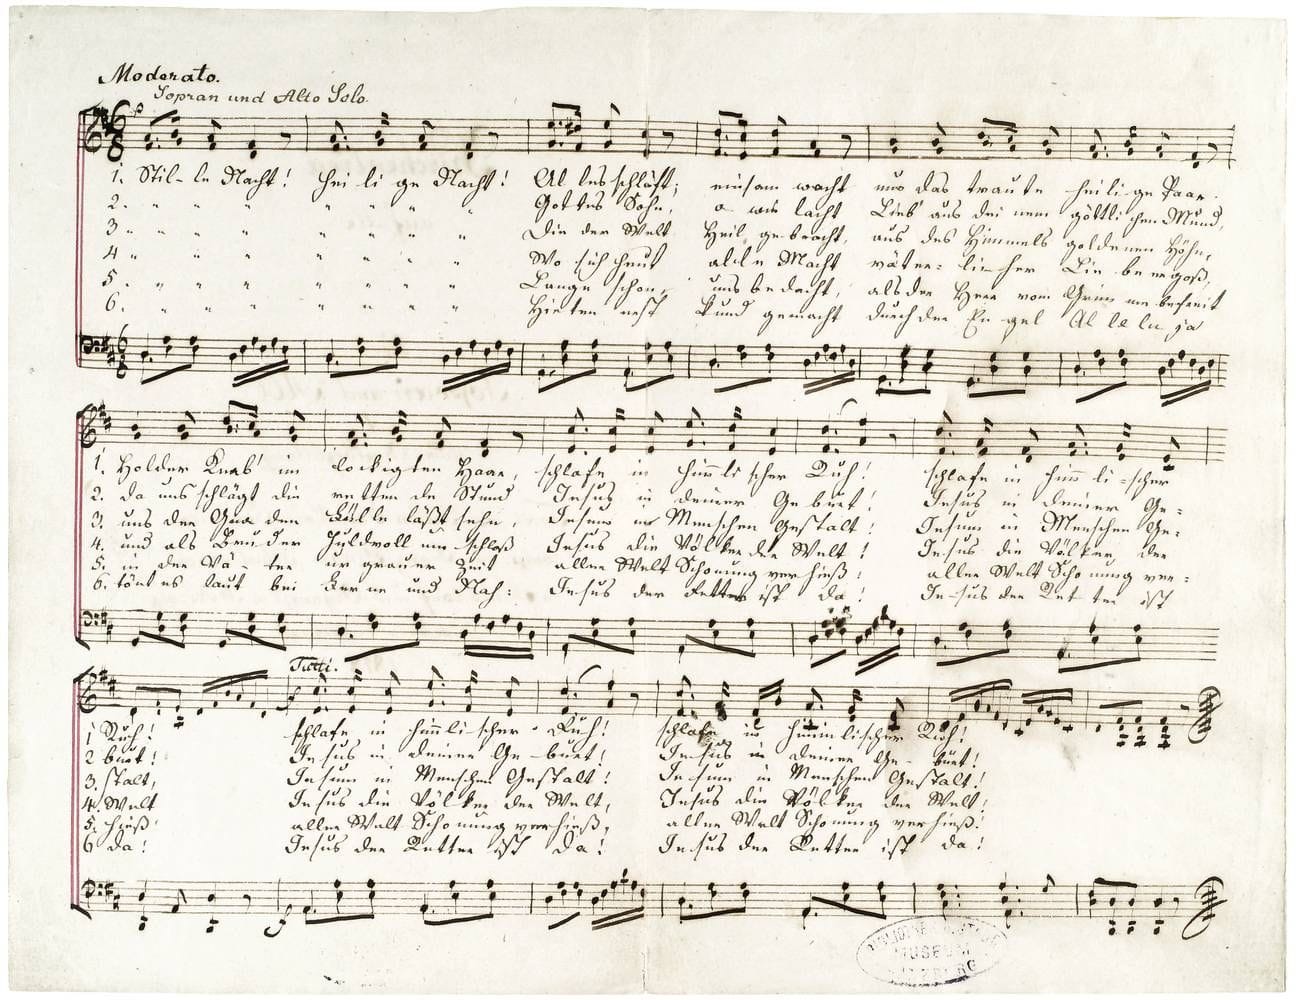 Moderato.
Sopran und Alto Solo.
1. Stil-le Nacht! Hei li ge Nacht! Al les schläft; einsam wacht nur das traute heili ge Paar.
2. " " " " " " " Gottes Sohn, o wie lacht Lieb' aus dei nem göttli chen Mund,
3. " " " " " " " Die der Welt Heil ge bracht, aus des Himmels goldenen Höhn,
4 " " " " " " " Wo sich heut alle Macht väter- li cher Lie be ergoß,
5. " " " " " " " Lange schon, uns bedacht, als der Herr vom Grim me befreit
6. " " " " " " " Hirten erst kund gemacht durch der En gel Al le lu ja
1. Holder Knab' im lockigten Haar, schlafe in himmli scher Ruh! schlafe in himmli-scher
2. da uns schlägt die retten de Stund Jesus in deiner Ge burt! Jesus in deiner Ge-
3. uns der Gna den Fülle läßt sehn, Jesum in Menschen Gestalt! Jesum in Menschen Ge-
4. und als Bruder Huldvoll um schloß Jesus die Völker der Welt! Jesus die Völker der
5. in der Vä-ter ur grauer Zeit aller Welt Schonung verhieß! aller Welt Scho nung ver-
6. tönt es laut bei Ferne und Nah: Jesus der Retter ist da! Je-sus der Ret-ter ist
Tutti.
1 Ruh! schlafe in himmlischer Ruh! schlafe in himmlischer Ruh!
2 burt! Jesus in deiner Ge burt! Jesus in deiner Ge-burt!
3. stalt, Jesum in Menschen Gestalt! Jesum in Menschen Gestalt!
4. Welt Jesus die Völker der Welt, Jesus die Völker der Welt!
5. hieß! aller Welt Scho nung verhieß, aller Welt Scho nung verhieß!
6 da! Jesus der Retter ist da! Jesus der Retter ist da!
MUSEUM